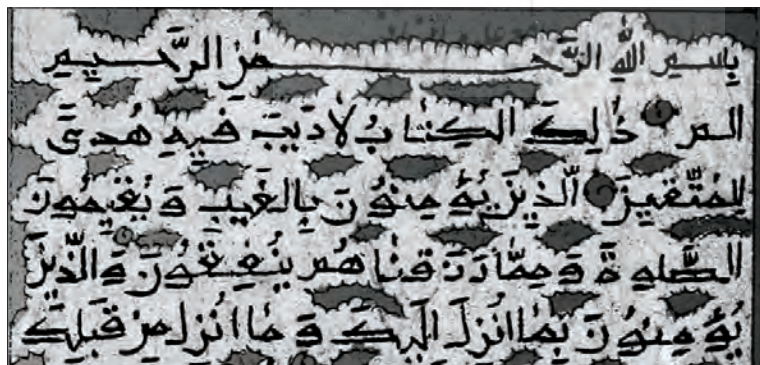 بِسْمِ اللهِ الرَّحْمٰنِ الرَّحِيمِ
الم ذٰلِكَ الكِتٰابُ لٰارَيبَ فِيهِ هُدىً
لِلمُتَّقِينَ الَّذِينَ يُؤمِنُونَ بِالغَيبِ وَيُقِيمُونَ
الصَّلوٰةَ وَمِمّٰارَزَقنٰاهُم يُنفِقُونَ وَالَّذِينَ
يُؤمِنُونَ بِمٰاانُزِلَ اِلَيكَ وَمٰاانُزِلَ مِن قَبلِكَ